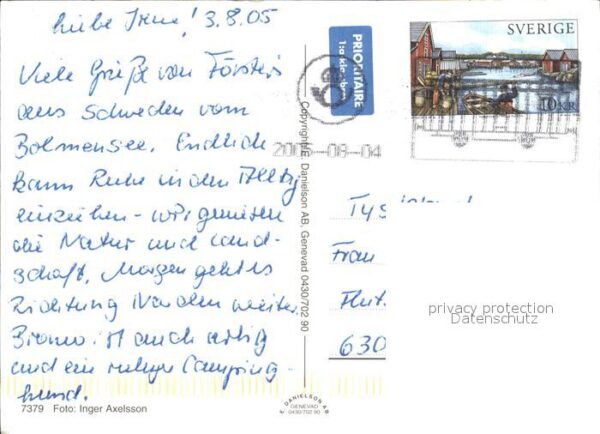 Liebe Irene! 3.8.05
Viele Grüße von Försters
aus Schweden vom
Bolmensee. Endlich
kann Ruhe in den Alltag
einziehen - wir genießen
die Natur und Land-
schaft. Morgen geht es
Richtung Norden weiter.
Bronco ist auch artig
und ein ruhiger Camping-
hund.
7379 Foto: Inger Axelsson
Copyright: E. Danielson AB, Genevad 0430/702 90
E. DANIELSON AB
GENEVAD
0430/702 90
PRIORITAIRE
1:a klassbrev
SVERIGE
10 KR
2005-08-04
Frau
630
privacy protection
Datenschutz